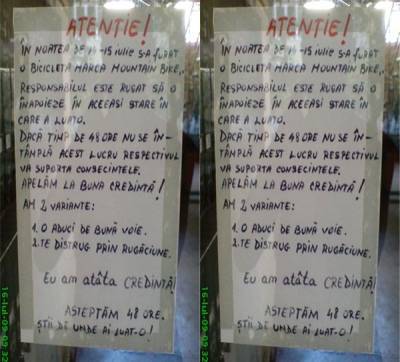 ATENȚIE!
ÎN NOATEA DE 14-15 iulie S-A FURAT
O BICICLETĂ MARCA MOUNTAIN BIKE,,
RESPONSABILUL ESTE RUGAT SĂ O
ÎNAPOIEZE ÎN ACEEASI STARE ÎN
CARE A LUATO.
DACĂ TIMP DE 48 ORE NU SE ÎN-
TÂMPLĂ ACEST LUCRU RESPECTIVUL
VA SUPORTA CONSECINTELE.
APELĂM LA BUNA CREDINTĂ!
AM 2 VARIANTE:
1. O ADUCI DE BUNĂ VOIE.
2. TE DISTRUG PRIN RUGĂCIUNE.
EU am atâta CREDINTĂ!
ASTEPTĂM 48 ORE.
ȘTII DE UNDE AI LUAT-O!
ATENȚIE!
ÎN NOATEA DE 14-15 iulie S-A FURAT
O BICICLETĂ MARCA MOUNTAIN BIKE,,
RESPONSABILUL ESTE RUGAT SĂ O
ÎNAPOIEZE ÎN ACEEASI STARE ÎN
CARE A LUATO.
DACĂ TIMP DE 48 ORE NU SE ÎN-
TÂMPLĂ ACEST LUCRU RESPECTIVUL
VA SUPORTA CONSECINTELE.
APELĂM LA BUNA CREDINTĂ!
AM 2 VARIANTE:
1. O ADUCI DE BUNĂ VOIE.
2. TE DISTRUG PRIN RUGĂCIUNE.
EU am atâta CREDINTĂ!
ASTEPTĂM 48 ORE.
ȘTII DE UNDE AI LUAT-O!